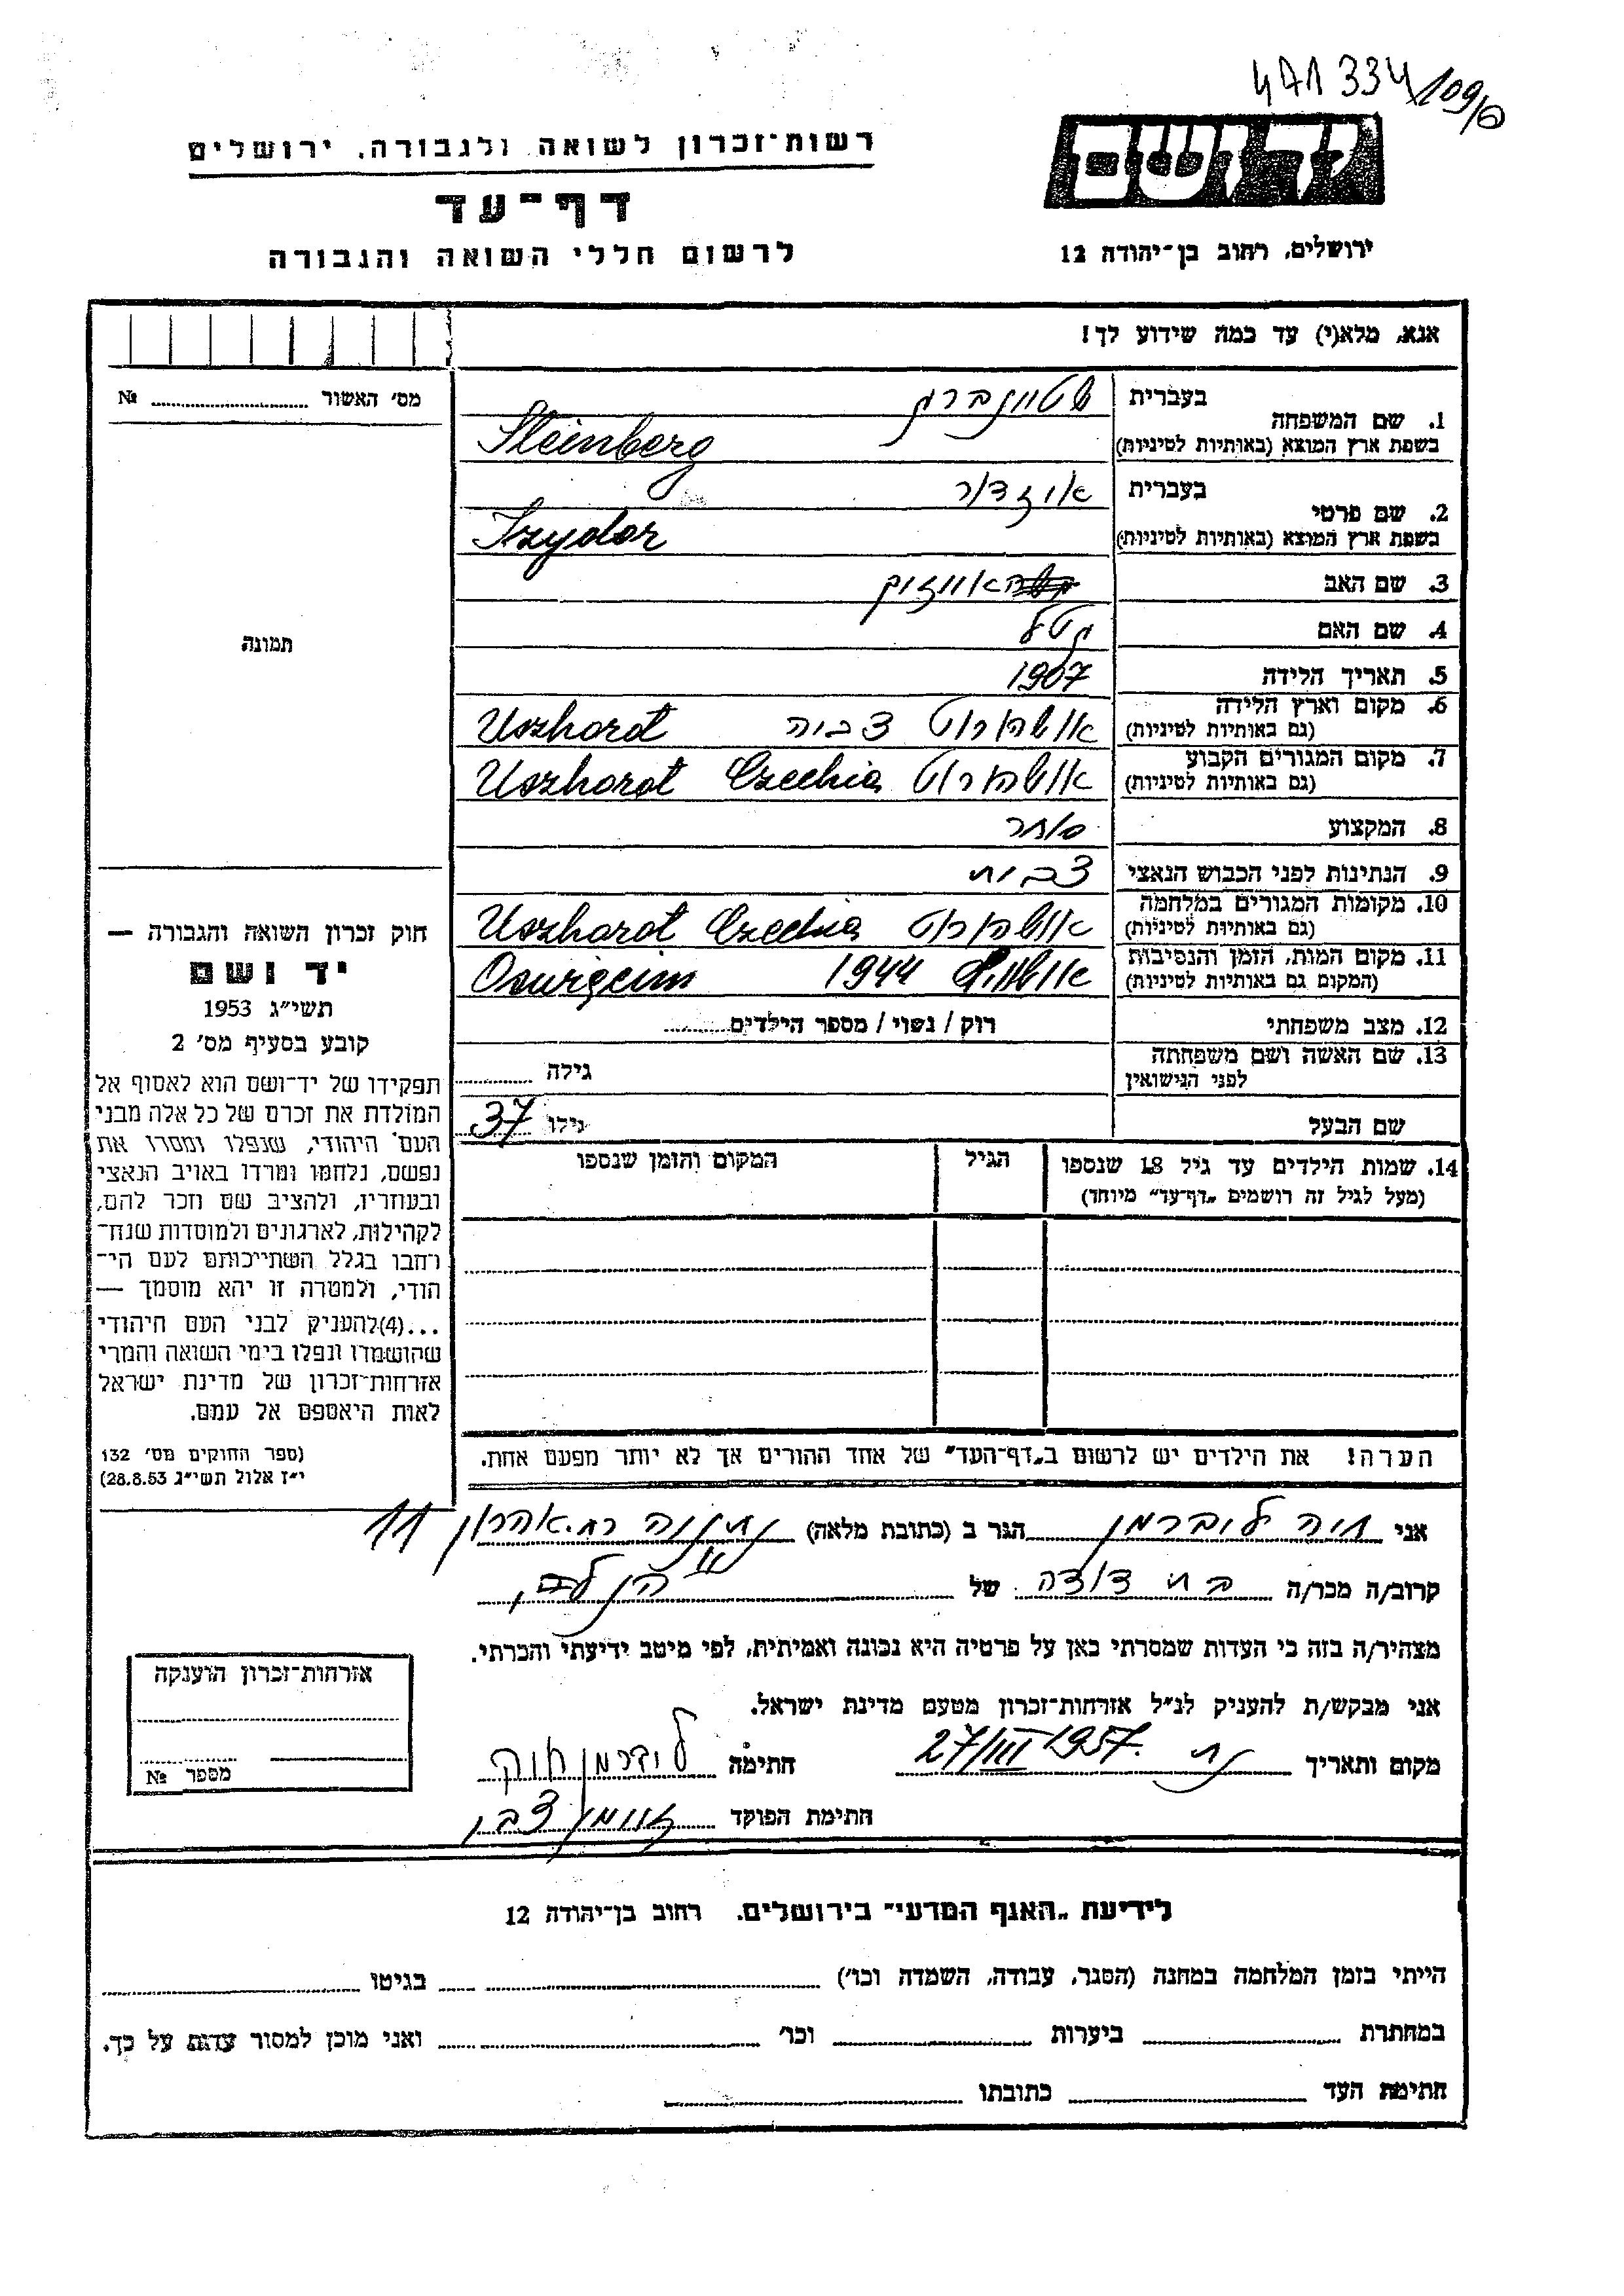 471334/109/6
יד ושם
ירושלים, רחוב בן־יהודה 12
רשות־זכרון לשואה ולגבורה, ירושלים
דף־עד
לרשום חללי השואה והגבורה
אנא, מלא(י) עד כמה שידוע לך!
מס׳ האשור № 
תמונה
1. שם המשפחה
בעברית שטיינברג
בשפת ארץ המוצא (באותיות לטיניות) Steinberg
2. שם פרטי
בעברית איזדור
בשפת ארץ המוצא (באותיות לטיניות) Izydor
3. שם האב
4. שם האם
5. תאריך הלידה 1907
6. מקום וארץ הלידה
(גם באותיות לטיניות) אושהורוט צכיה Uszhorot
7. מקום המגורים הקבוע
(גם באותיות לטיניות) אושהורוט Uszhorot Czechia
8. המקצוע סוחר
9. הנתינות לפני הכבוש הנאצי צכית
10. מקומות המגורים במלחמה
(גם באותיות לטיניות) אושהורוט Uszhorot Czechia
11. מקום המות, הזמן והנסיבות
(המקום גם באותיות לטיניות) 1944
12. מצב משפחתי רוק / נשוי / מספר הילדים
13. שם האשה ושם משפחתה
לפני הנישואין גילה
שם הבעל גילו 37
14. שמות הילדים עד גיל 18 שנספו הגיל המקום והזמן שנספו
(מעל לגיל זה רושמים „דף־עד״ מיוחד)
הערה! את הילדים יש לרשום ב„דף־העד״ של אחד ההורים אך לא יותר מפעם אחת.
חוק זכרון השואה והגבורה —
יד ושם
תשי״ג 1953
קובע בסעיף מס׳ 2
תפקידו של יד־ושם הוא לאסוף אל
המולדת את זכרם של כל אלה מבני
העם היהודי, שנפלו ומסרו את
נפשם, נלחמו ומרדו באויב הנאצי
ובעוזריו, ולהציב שם וזכר להם,
לקהילות, לארגונים ולמוסדות שנח־
רחבו בגלל השתייכותם לעם הי־
הודי, ולמטרה זו יהא מוסמך —
...(4)להעניק לבני העם היהודי
שהושמדו ונפלו בימי השואה והמרי
אזרחות־זכרון של מדינת ישראל
לאות היאספם אל עמם.
(ספר החוקים מס׳ 132
י״ז אלול תשי״ג 28.8.53)
אני חיה ליברמן הגר ב (כתובת מלאה) נתניה רח. אהרון 11
קרוב/ה מכר/ה בת דודה של הנ״ל
מצהיר/ה בזה כי העדות שמסרתי כאן על פרטיה היא נכונה ואמיתית, לפי מיטב ידיעתי והכרתי.
אני מבקש/ת להעניק לנ״ל אזרחות־זכרון מטעם מדינת ישראל.
מקום ותאריך נת 27/III 1957. חתימה ליברמן חיה
חתימת הפוקד
אזרחות־זכרון הוענקה
מספר №
לידיעת „האגף המדעי״ בירושלים, רחוב בן־יהודה 12
הייתי בזמן המלחמה במחנה (הסגר, עבודה, השמדה וכו׳) בגיטו
במחתרת ביערות וכו׳ ואני מוכן למסור עדות על כך.
חתימת העד כתובתו